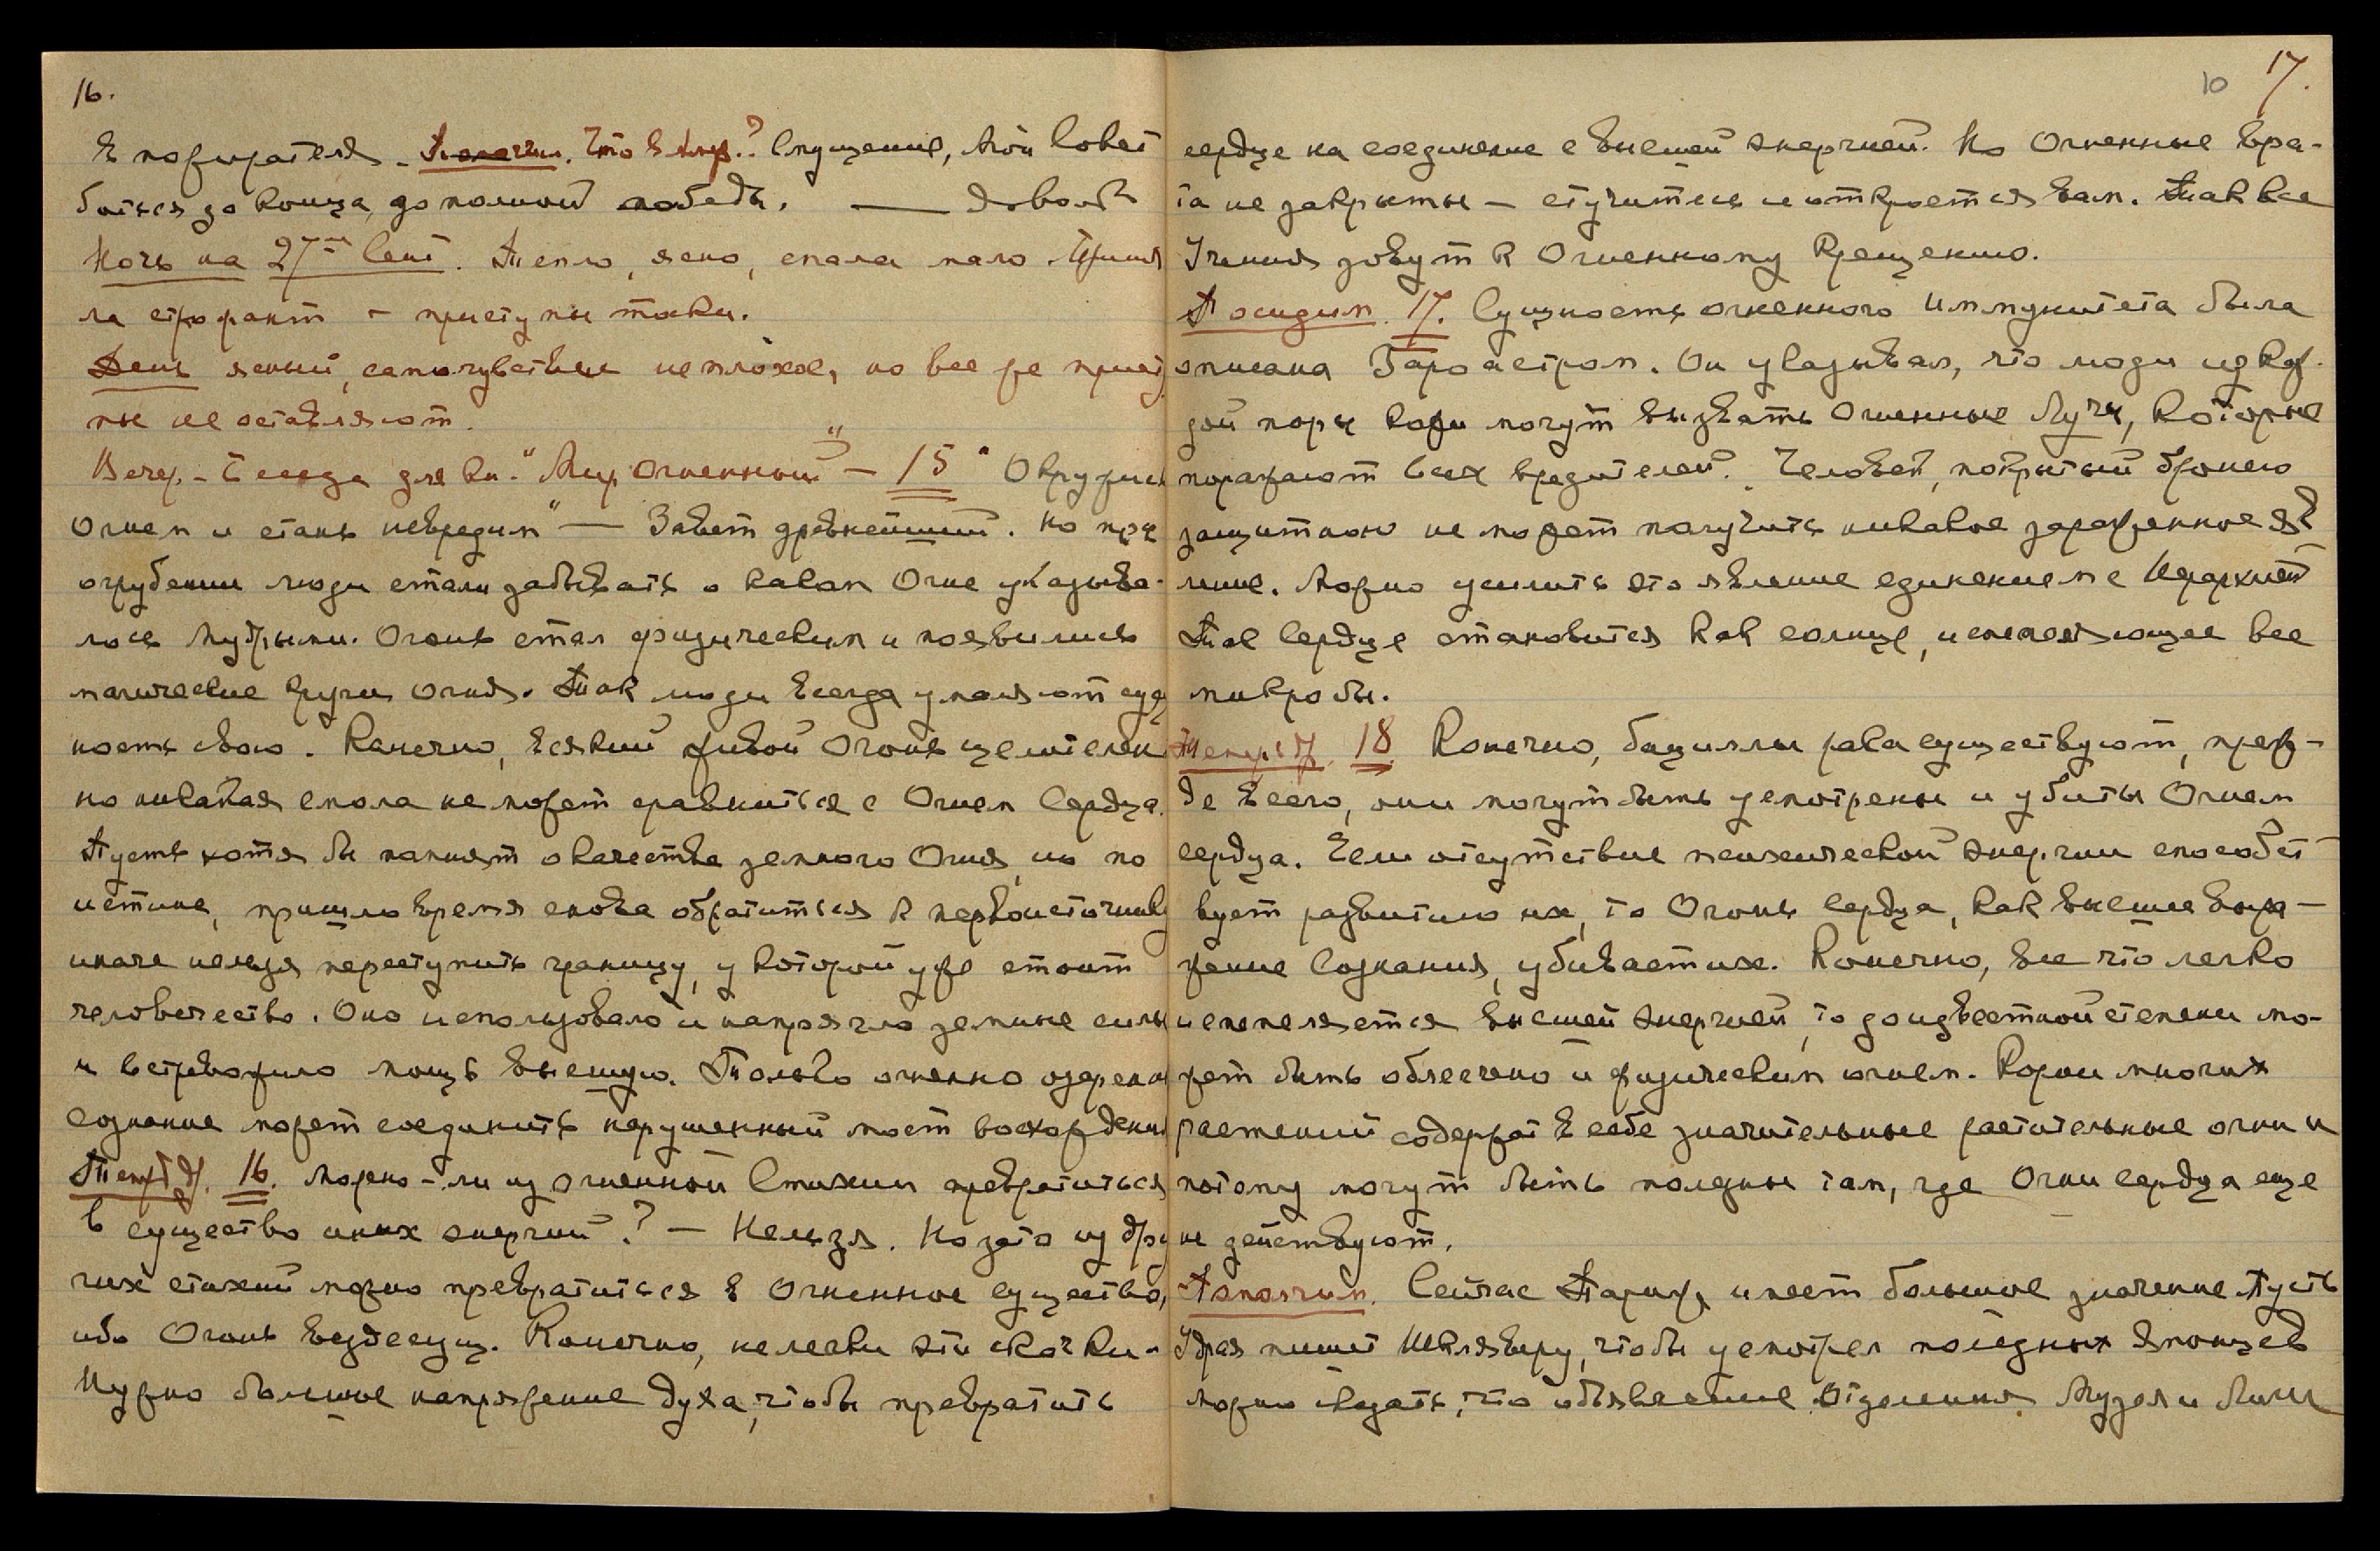 16.
в пожирателя. – Помолчим. Что в Амер.? Смущение, Мой Совет
биться до конца, до полной победы. — Довольно
Ночь на 27ое Сент. Тепло, ясно, спала мало. Приня
ла строфант – приступы тоски.
День ясный, самочувствие неплохое, но все же присту
пы не оставляют.
Вечер. – Беседа для кн. "Мир Огненный" – 15 "Окружись
огнем и стань невредим" — Завет древнейший. Но при
огрубении люди стали забывать о каком Огне указыва-
лось Мудрыми. Огонь стал физическим и появились
магические круги огня. Так люди всегда умаляют сущ
ность свою. Конечно, всякий живой Огонь целителен
но никакая смола не может сравниться с Огнем Сердца.
Пусть хотя бы помнят о качестве земного Огня, но по
истине, пришло время снова обратиться к первоисточнику
иначе нельзя переступить границу, у которой уже стоит
человечество. Оно использовало и напрягло земные силы
и встревожило мощь Высшую. Только огненно озаренное
сознание может соединить нарушенный мост восхождения
Тетрадь. 16. Можно-ли из огненной Стихии превратиться
в существо иных энергий? – Нельзя. Но зато из дру
гих стихий можно превратиться в Огненное существо,
ибо Огонь вездесущ. Конечно, нелегки эти скачки –
Нужно большое напряжение духа, чтобы превратить
10 17.
сердце на соединение с высшей энергией. Но Огненные вра-
та не закрыты – стучитесь и откроется вам. Так все
Учения зовут к Огненному Крещению.
Посидим. 17. Сущность огненного Иммунитета была
описана Зароастром. Он указывал, что люди из каж-
дой поры кожи могут вызвать Огненные Лучи, которые
поражают всех вредителей. Человек, покрытый бронею
защитною не может получить никакое заражение яв
ление. Можно усилить это явление единением с Иерархией
Так Сердце становится как солнце, испепеляющее все
микробы.
18 Конечно, бациллы рака существуют, преж-
де всего, они могут быть усмотрены и убиты Огнем
сердца. Если отсутствие психической энергии способст
вует развитию их, то Огонь Сердца, как высшее выра-
жение Сознания, убивает их. Конечно, все что легко
испепеляется высшей энергией, то до известной степени мо-
жет быть облегчено и физическим огнем. Корни многих
растений содержат в себе значительные растительные огни и
потому могут быть полезны там, где Огни сердца еще
не действуют.
Помолчим. Сейчас Париж имеет большое значение. Пусть
Удрая пишет Шклявиру, чтобы усмотрел полезных Японцев
можно сказать, что объявление Отделения Музея и Лиги